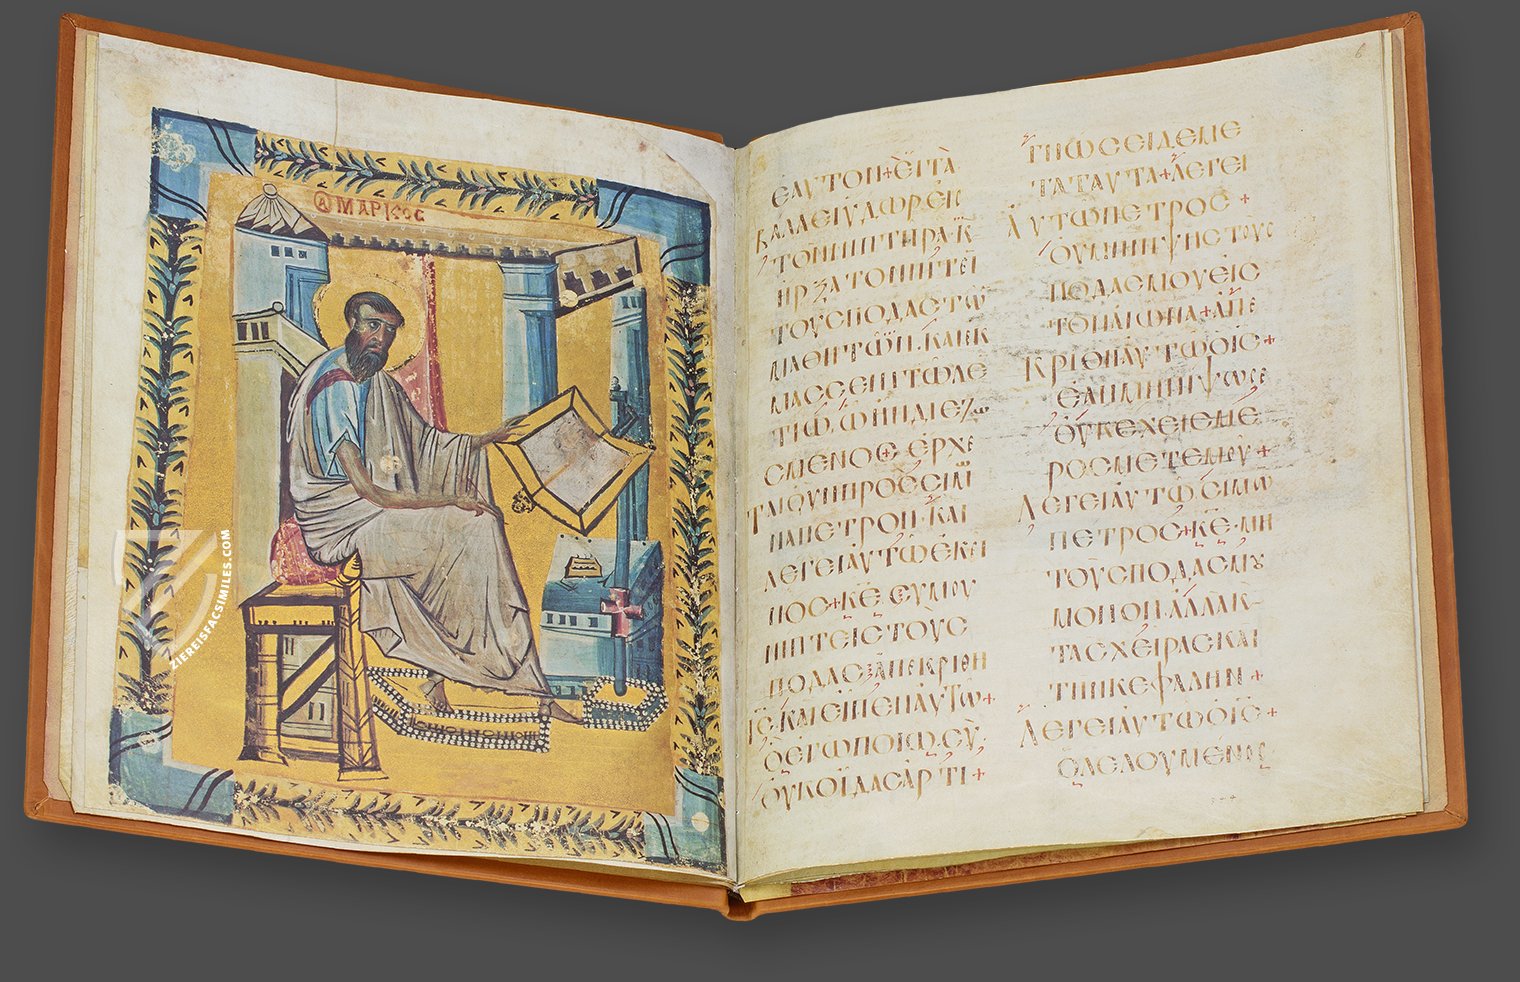 ΜΑΡΚΟΣ
ΕΑΥΤΟΝ+ΕΙΤΑ
ΒΑΛΛΕΙΥΔΩΡΕΙϹ
ΤΟΝΝΙΠΤΗΡΑ·Κ
ΗΡΞΑΤΟΝΙΠΤΕΙ
ΤΟΥϹΠΟΔΑϹΤΩ
ΜΑΘΗΤΩΝ·ΚΑΙΕΚ
ΜΑϹϹΕΙΝΤΩΛΕ
ΤΙΩ·ΩΗΝΔΙΕΖΩ
ϹΜΕΝΟϹ+ΕΡΧΕ
ΤΑΙΟΥΝΠΡΟϹϹΙΜ
ΝΑΠΕΤΡΟΝ·ΚΑΙ
ΛΕΓΕΙΑΥΤΩΕΚΕΙ
ΝΟϹ+ΚΕ ϹΥΜΟΥ
ΝΙΠΤΕΙϹΤΟΥϹ
ΠΟΔΑϹ;ΑΠΕΚΡΙΘΗ
ΙϹ ΚΑΙΕΙΠΕΝΑΥΤΩ+
ΟΕΓΩΠΟΙΩ ϹΥ
ΟΥΚΟΙΔΑϹΑΡΤΙ+
ΓΝΩϹΕΙΔΕΜΕ
ΤΑΤΑΥΤΑ+ΛΕΓΕΙ
ΑΥΤΩΠΕΤΡΟϹ+
ΟΥΜΗΝΙΨΗϹΤΟΥϹ
ΠΟΔΑϹΜΟΥΕΙϹ
ΤΟΝΑΙΩΝΑ+ΑΠΕ
ΚΡΙΘΗΑΥΤΩΟΙϹ+
ΕΑΝΜΗΝΙΨΩϹΕ
ΟΥΚΕΧΕΙϹΜΕ
ΡΟϹΜΕΤΕΜΟΥ+
ΛΕΓΕΙΑΥΤΩϹΙΜΩ
ΠΕΤΡΟϹ+ΚΕ·ΜΗ
ΤΟΥϹΠΟΔΑϹΜΟΥ
ΜΟΝΟΝ·ΑΛΛΑΚ
ΤΑϹΧΕΙΡΑϹΚΑΙ
ΤΗΝΚΕΦΑΛΗΝ+
ΛΕΓΕΙΑΥΤΩΟΙϹ+
ΟΛΕΛΟΥΜΕΝΟϹ
ZIEREISFACSIMILES.COM